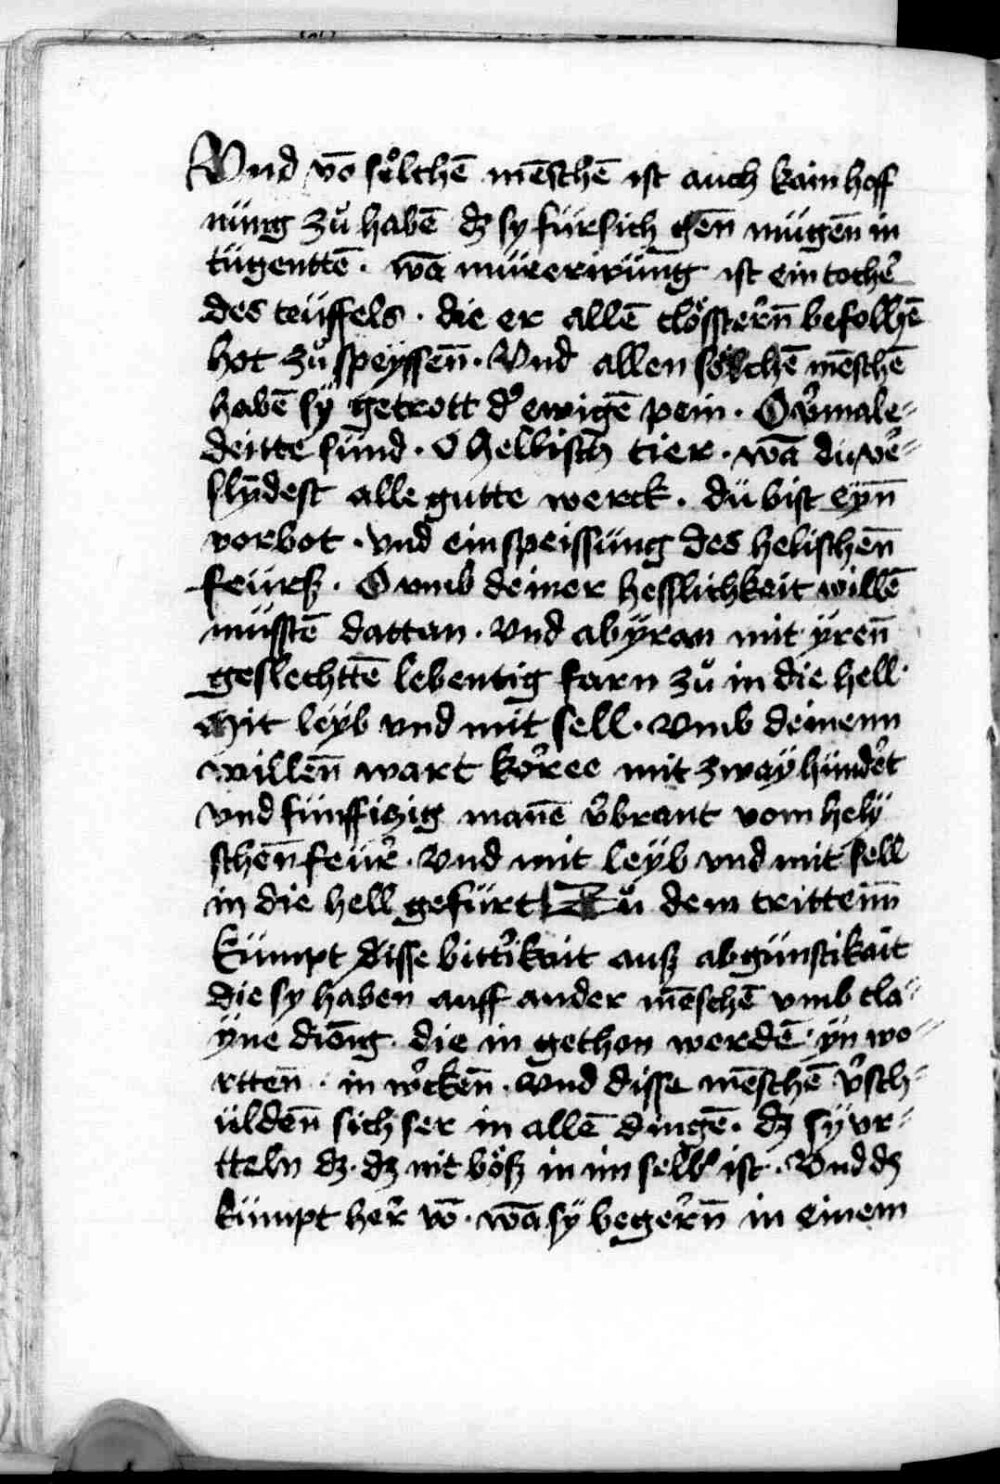 Vnd võ soͤlchē mēschē ist auch kain hoff
nüng zuͦ habē dʒ sy fürsich gen̄ mügen̄ in
tügenttē · wā mürerirün̄g ist ein tochẻ
des teüffels · die er allē cloͤsster̉n̄ befolhē
hot zuͦ speyssen̄ · Vnd allen soͤlchē mēschē
habē sÿ getrott d̉ ewigē pein · O v̉male⸗
deitte sünd · O hellisch tier · wā du vẻ⸗
slyn̄dest alle gutte werck · dü bist eyn̄
vorbot · vnd ein speissüng des helischen̄
feürß · O vmb deiner hesslichkeit willē
müsstē dattan · vnd abÿran mit ÿren̄
geslechttē lebentig farn zuͦ in die hell ·
mit leÿb vnd mit sell · vmb deinenn
willen̄ wart kor̉ee mit zwaÿ hünder̉t
vnd fünffitzig manē v̉brant vom helÿ
schen̄ feür̉ · vnd mit leÿb vnd mit sell
in die hell gefürt Zuͦ dem trittenn̄
kümpt disse bittr̉ikait auß abgünstikait
die sy haben auff ander mēschē vmb cla⸗
ÿne din̄g · die in gethon werdē · ÿn wo⸗
rtten̄ · in wr̉cken̄ · vnd disse mēschē v̉sch⸗
ülden̄ sich ser in allē dingē · dʒ sÿ vr⸗
tteln dʒ · dʒ nit boͤß in im selb̉ ist · Vnd dʒ
kümpt her̉ võ · wā sÿ beger̉n̄ in einem